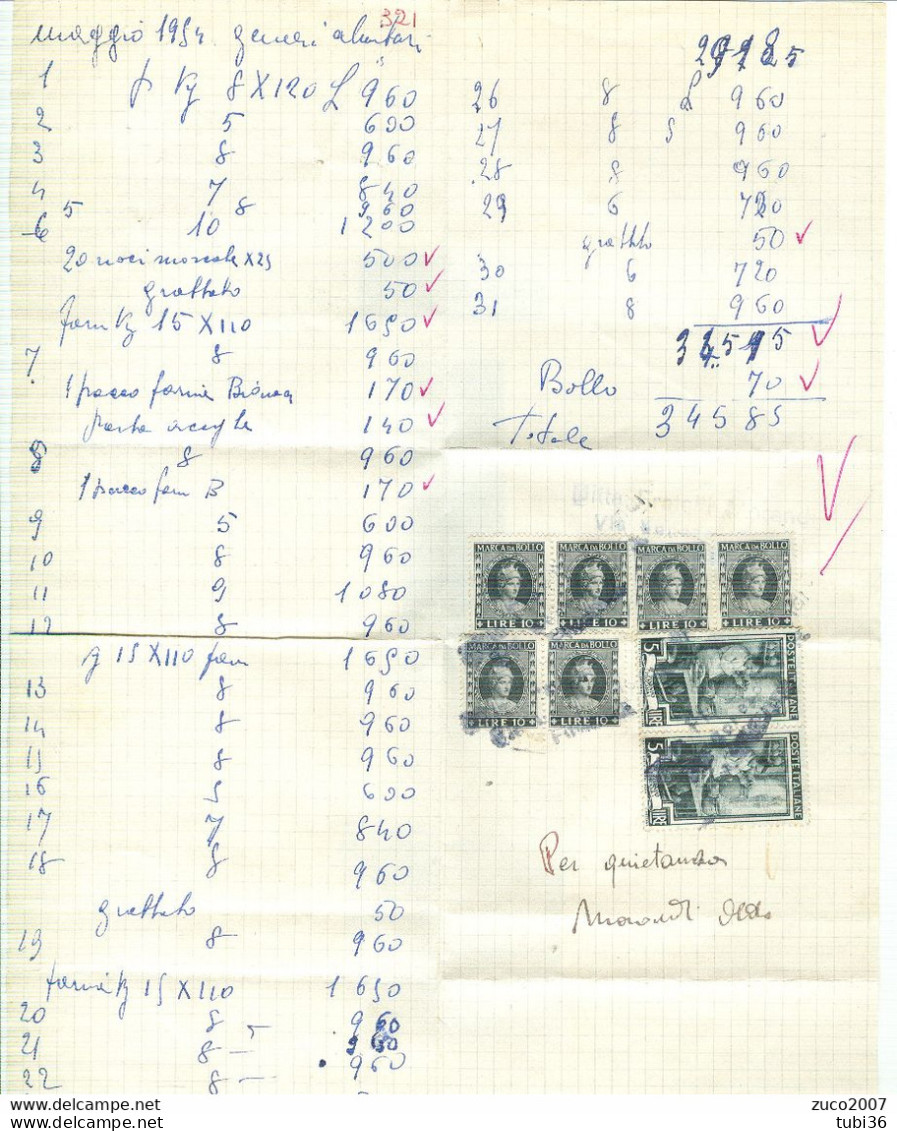 321
maggio 1954 generi alimentari
1 p Kg 8 X 120 L 960
2 5 600
3 8 960
4 7 840
5 8 960
6 10 1200
20 noci moscate X 25 500
grattato 50
farin Kg 15 X 110 1650
7 8 960
1 pacco farina Bianca 170
pasta acciughe 140
8 8 960
1 pacco farin B 170
9 5 600
10 8 960
11 9 1080
12 8 960
15 X 110 farin 1650
13 8 960
14 8 960
15 8 960
16 5 600
17 7 840
18 8 960
grattato 50
19 8 960
farina Kg 15 X 110 1650
20 8 960
21 8 - 5
22 8 - 960
26 8 L 960
27 8 S 960
28 8 960
29 6 720
grattato 50
30 6 720
31 8 960
34515
Bollo 70
Totale 34585
MARCA DA BOLLO MARCA DA BOLLO MARCA DA BOLLO MARCA DA BOLLO
LIRE 10 LIRE 10 LIRE 10 LIRE 10
MARCA DA BOLLO MARCA DA BOLLO
LIRE 10 LIRE 10
5 LIRE POSTE ITALIANE
5 LIRE POSTE ITALIANE
Per quietanza
Morandi Aldo
zuco2007
tubi36